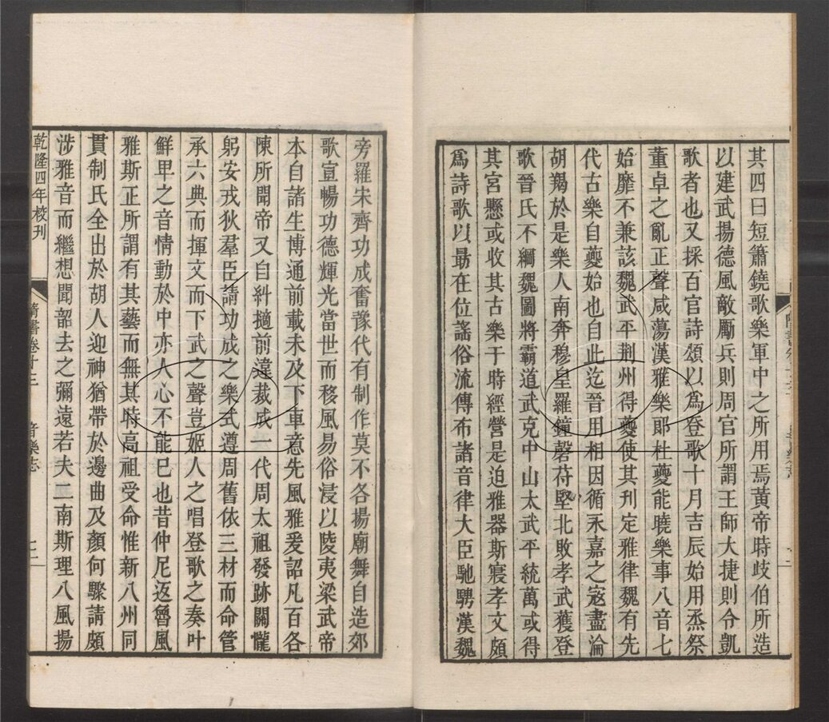 其四曰短簫鐃歌樂軍中之所用焉黃帝時歧伯所造
以建武揚德風敵勵兵則周官所謂王師大捷則令凱
歌者也又採百官詩頌以爲登歌十月吉辰始用烝祭
董卓之亂正聲咸蕩漢雅樂郎杜夔能曉樂事八音七
始靡不兼該魏武平荆州得夔使其刊定雅律魏有先
代古樂自夔始也自此迄晉用相因循永嘉之寇盡淪
胡羯於是樂人南奔穆皇羅鐘磬苻堅北敗孝武獲登
歌晉氏不綱魏圖將霸道武克中山太武平統萬或得
其宮懸或收其古樂于時經營是迫雅器斯寢孝文頗
爲詩歌以勗在位謠俗流傳布諸音律大臣馳騁漢魏
旁羅宋齊功成奮豫代有制作莫不各揚廟舞自造郊
歌宣暢功德輝光當世而移風易俗浸以陵夷梁武帝
本自諸生博通前載未及下車意先風雅爰詔凡百各
陳所聞帝又自糾擿前違裁成一代周太祖發跡關隴
躬安戎狄羣臣請功成之樂式遵周舊依三材而命管
承六典而揮文而下武之聲豈姬人之唱登歌之奏叶
鮮卑之音情動於中亦人心不能已也昔仲尼返魯風
雅斯正所謂有其藝而無其時高祖受命惟新八州同
貫制氏全出於胡人迎神猶帶於邊曲及顏何驟請頗
涉雅音而繼想聞韶去之彌遠若夫二南斯理八風揚
乾隆四年校刊
隋書卷十三
音樂志